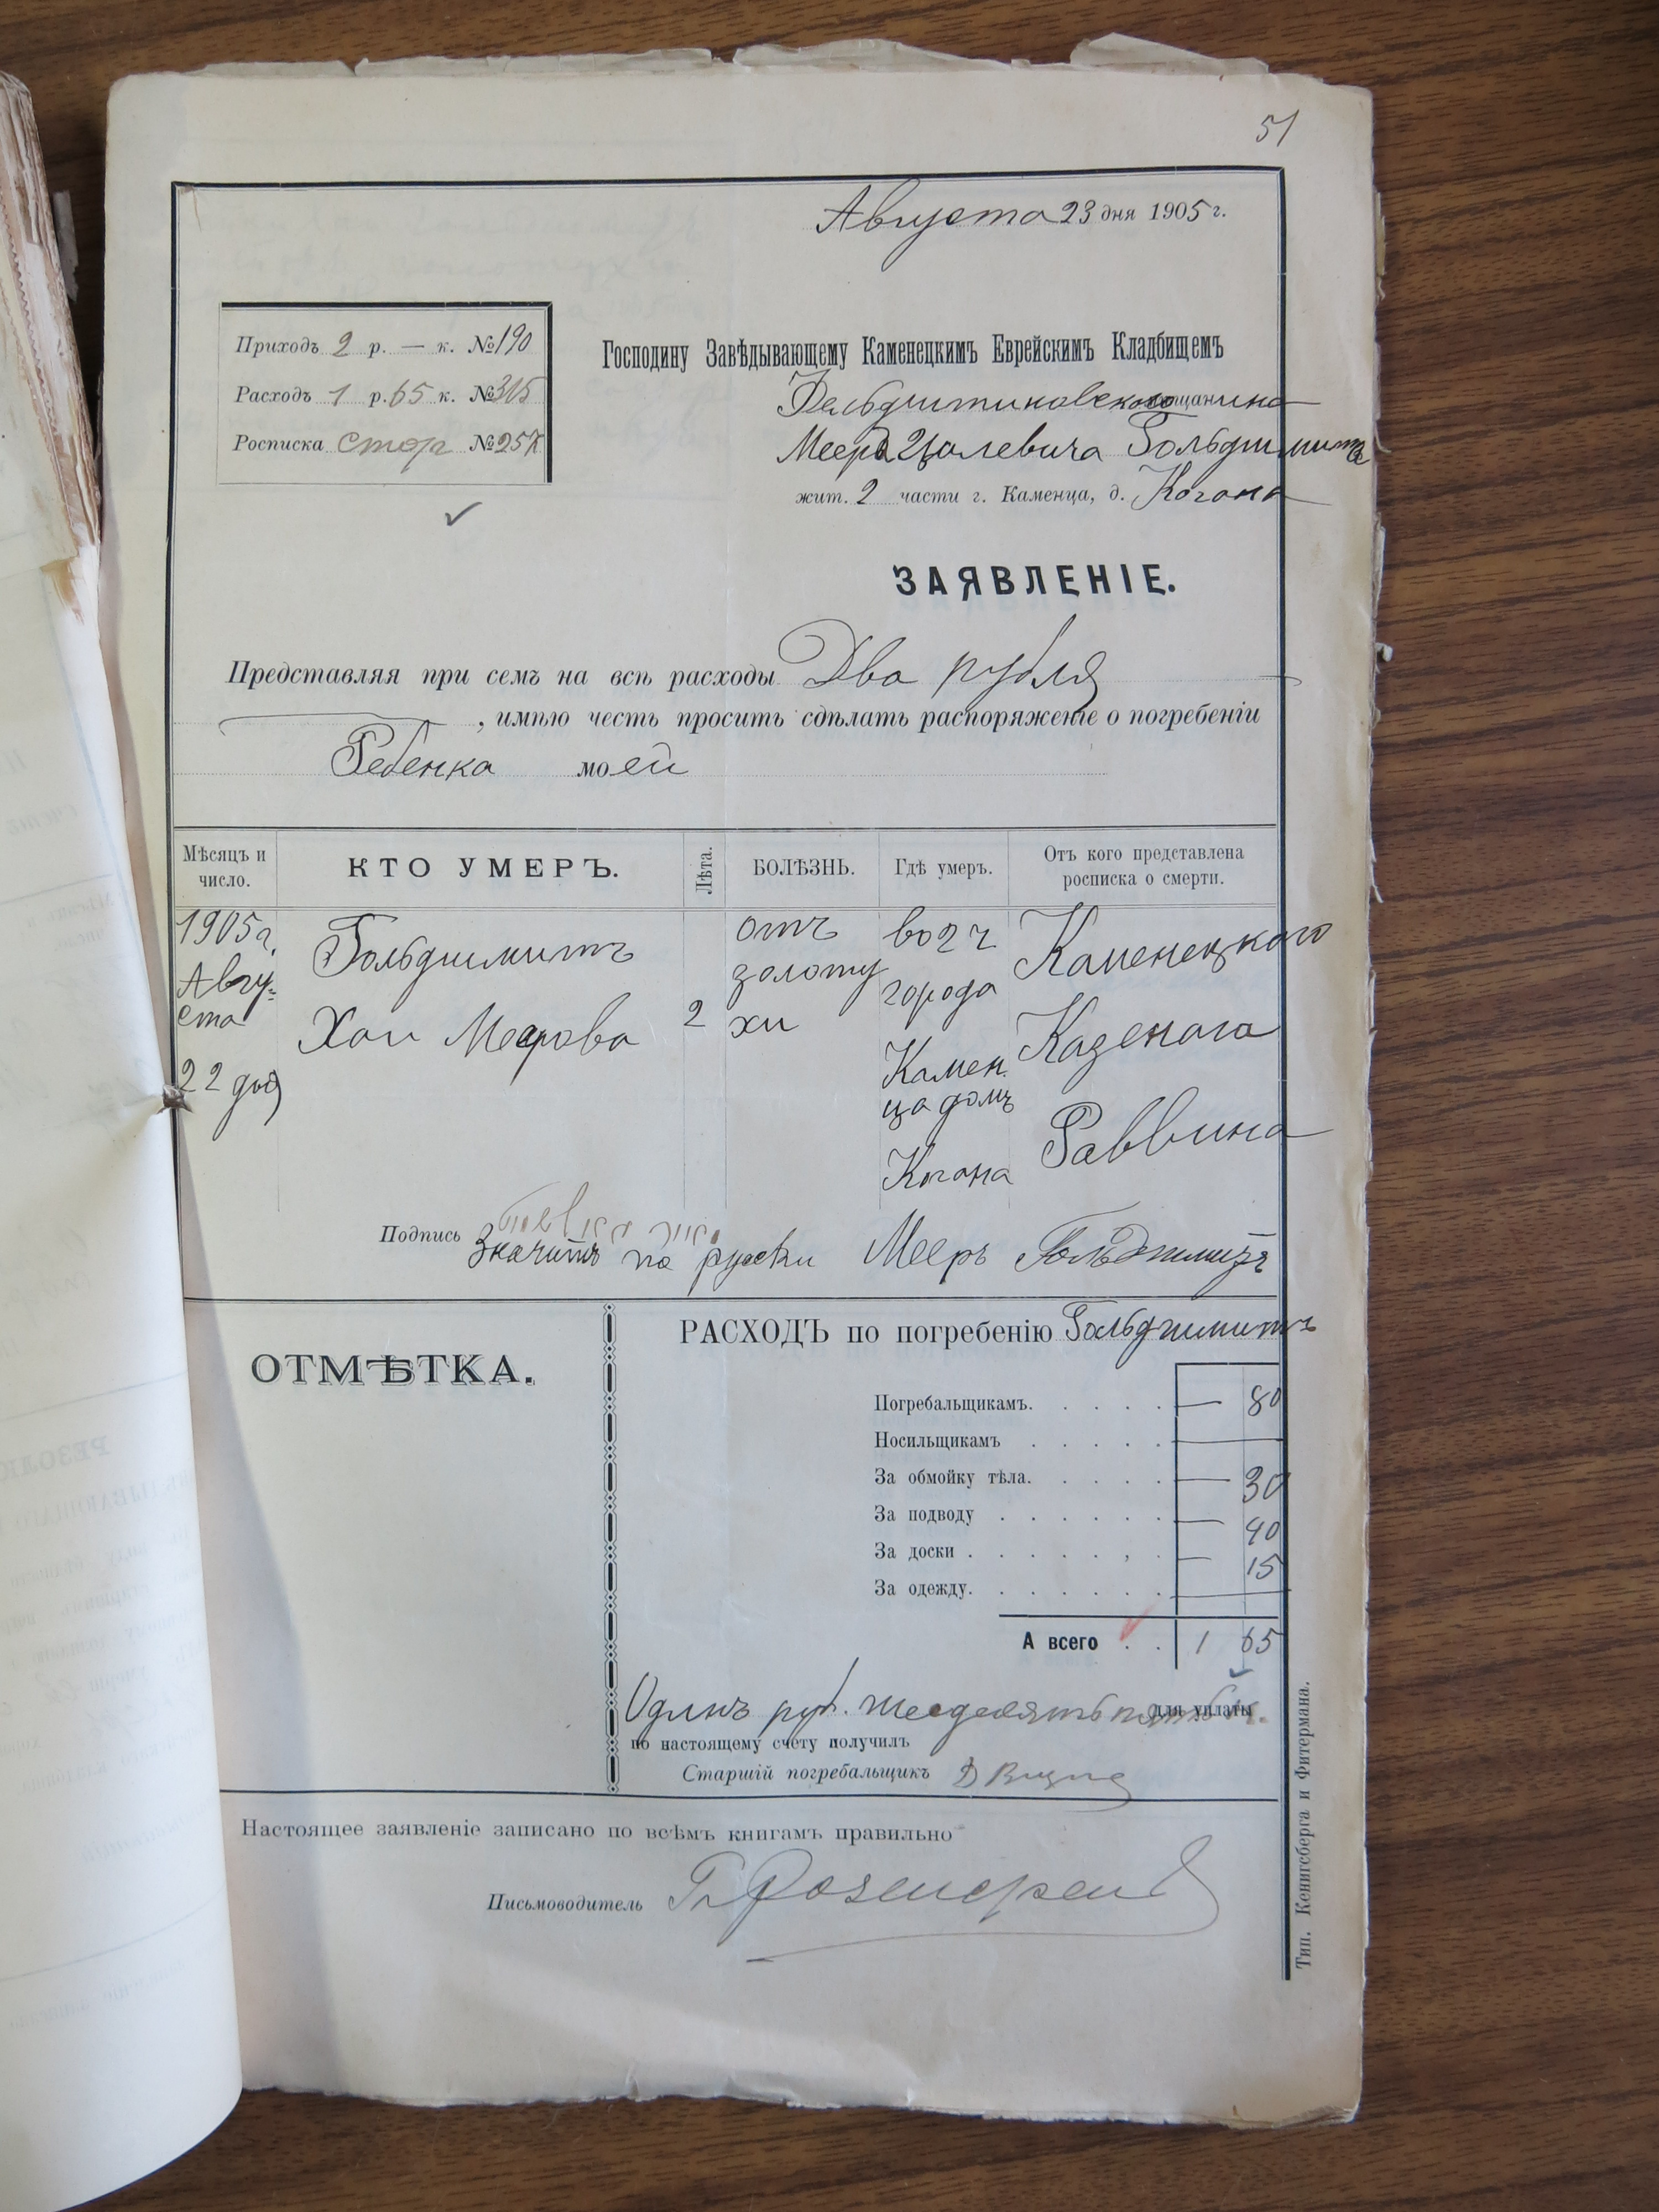 51
Августа 23 дня 1905 г.
Приходъ 2 р. — к. №190
Расходъ 1 р. 65 к. №315
Росписка стор №257
Господину Завѣдывающему Каменецкимъ Еврейскимъ Кладбищемъ
мѣщанина
Меера Цалевича Гольдшмитъ
жит. 2 части г. Каменца, д. Когана
ЗАЯВЛЕНІЕ.
Представляя при семъ на всѣ расходы Два рубля
, имѣю честь просить сдѣлать распоряженіе о погребеніи
Ребенка моей
Мѣсяцъ и число.
КТО УМЕРЪ.
Лѣта.
БОЛѢЗНЬ.
Гдѣ умеръ.
Отъ кого представлена росписка о смерти.
1905 г.
Авгу-
ста
22 дня
Гольдшмитъ
Хаи Меерова
2
отъ
золоту
хи
во 2 ч
города
Камен
ца домъ
Когана
Каменецкого
Казенага
Раввина
Подпись
Значитъ по руски Мееръ Гольдшмитъ
ОТМѢТКА.
РАСХОДЪ по погребенію Гольдшмитъ
Погребальщикамъ. — 80
Носильщикамъ —
За обмойку тѣла. — 30
За подводу — 40
За доски — 15
За одежду. —
А всего 1 65
Одинъ руб. шесдесятъ пять к. для уплаты
по настоящему счету получилъ
Старшій погребальщикъ
Настоящее заявленіе записано по всѣмъ книгамъ правильно
Письмоводитель
Тип. Кенигсберга и Фитермана.